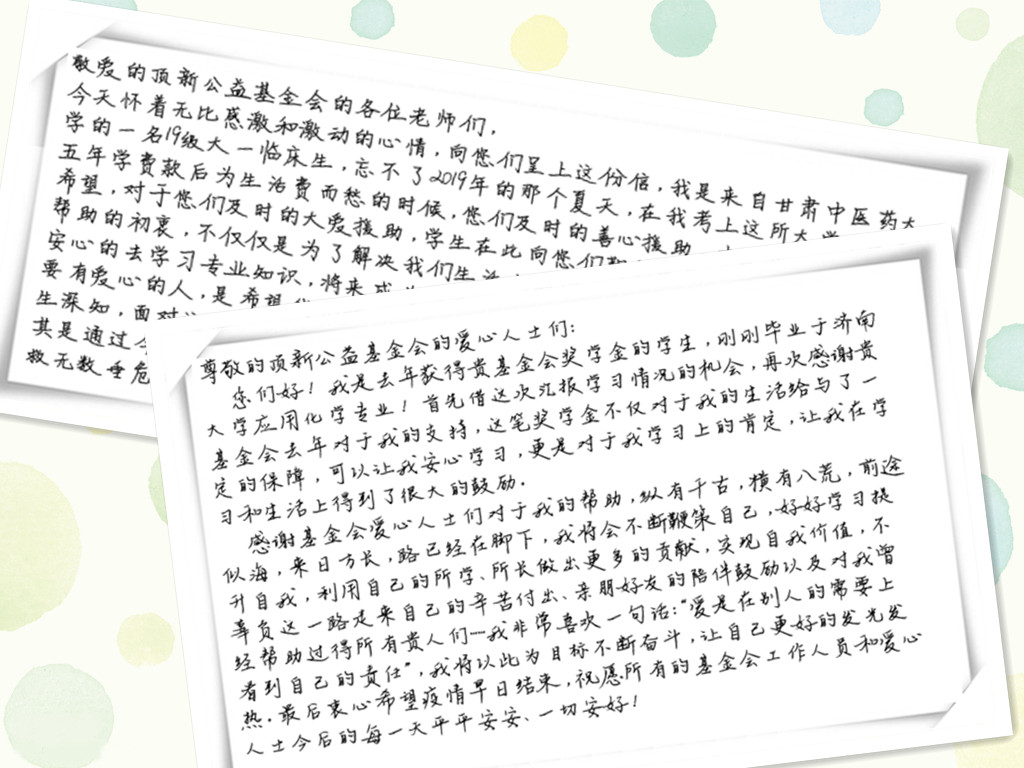 敬爱的顶新公益基金会的各位老师们，
今天怀着无比感激和激动的心情，向您们呈上这份信，我是来自甘肃中医药大
学的一名19级大一临床生，忘不了2019年的那个夏天，在我考上这所大学
五年学费款后为生活费而愁的时候，您们及时的善心援助
希望，对于您们及时的大爱援助，学生在此向您们
帮助的初衷，不仅仅是为了解决我们生活
安心的去学习专业知识，将来成
要有爱心的人，是希望
生深知，面对
其是通过
救无数垂危
尊敬的顶新公益基金会的爱心人士们：
您们好！我是去年获得贵基金会奖学金的学生，刚刚毕业于济南
大学应用化学专业！首先借这次汇报学习情况的机会，再次感谢贵
基金会去年对于我的支持，这笔奖学金不仅对于我的生活给与了一
定的保障，可以让我安心学习，更是对于我学习上的肯定，让我在学
习和生活上得到了很大的鼓励．
感谢基金会爱心人士们对于我的帮助，纵有千古，横有八荒，前途
似海，来日方长，路已经在脚下，我将会不断鞭策自己，好好学习提
升自我，利用自己的所学、所长做出更多的贡献，实现自我价值，不
辜负这一路走来自己的辛苦付出、亲朋好友的陪伴鼓励以及对我曾
经帮助过得所有贵人们…我非常喜欢一句话：“爱是在别人的需要上
看到自己的责任”，我将以此为目标不断奋斗，让自己更好的发光发
热．最后衷心希望疫情早日结束，祝愿所有的基金会工作人员和爱心
人士今后的每一天平平安安、一切安好！